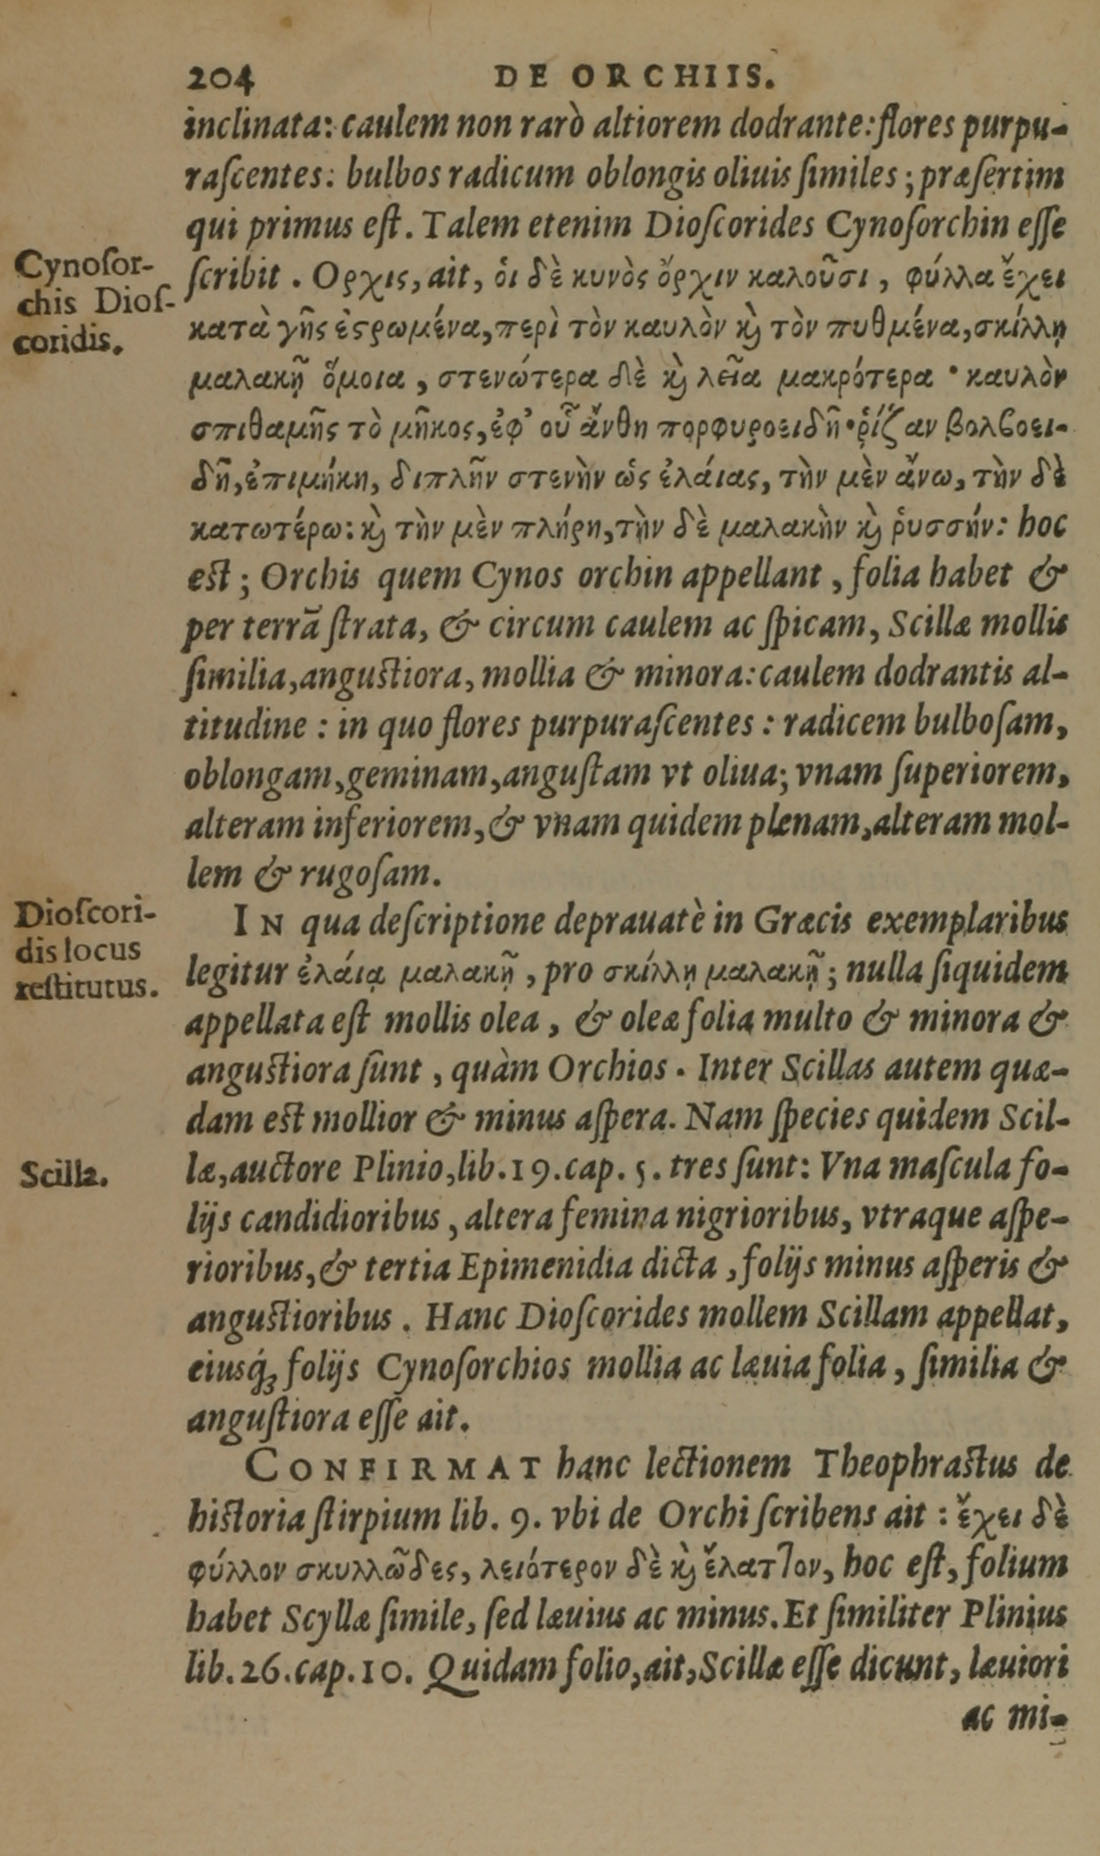 204 DE ORCHIIS.
inclinata: caulem non rarò altiorem dodrante: flores purpu-
raſcentes: bulbos radicum oblongis oliuis ſimiles; præſertim
qui primus eſt. Talem etenim Dioſcorides Cynoſorchin eſſe
Cynoſor-
chis Dioſ-
coridis.
ſcribit. Ορχις, ait, ὁι δὲ κυνὸς ὄρχιν καλοῦσι, φύλλα ἔχει
κατὰ γῆς ἐςρωμένα, περὶ τὸν καυλὸν ϗ̀ τὸν πυθμένα, σκίλλῃ
μαλακῇ ὅμοια, στενώτερα δὲ ϗ̀ λεῖα μακρότερα · καυλὸν
σπιθαμῆς τὸ μῆκος, ἐφ’ οὗ ἄνθη πορφυροειδῆ · ῥίζαν βολβοει-
δῆ, ἐπιμήκη, διπλῆν στενὴν ὡς ἐλάιας, τὴν μὲν ἄνω, τὴν δὲ
κατωτέρω: ϗ̀ τὴν μὲν πλήρη, τὴν δὲ μαλακὴν ϗ̀ ῥυσσήν: hoc
eſt; Orchis quem Cynos orchin appellant, folia habet &
per terrā ſtrata, & circum caulem ac ſpicam, Scillæ mollis
ſimilia, anguſtiora, mollia & minora: caulem dodrantis al-
titudine: in quo flores purpuraſcentes: radicem bulboſam,
oblongam, geminam, anguſtam vt oliua; vnam ſuperiorem,
alteram inferiorem, & vnam quidem plenam, alteram mol-
lem & rugoſam.
Dioſcori-
dis locus
reſtitutus.
IN qua deſcriptione deprauatè in Græcis exemplaribus
legitur ἐλάιᾳ μαλακῇ, pro σκίλλῃ μαλακῇ; nulla ſiquidem
appellata eſt mollis olea, & oleæ folia multo & minora &
anguſtiora ſunt, quàm Orchios. Inter Scillas autem quæ-
dam eſt mollior & minus aſpera. Nam ſpecies quidem Scil-
Scilla.
læ, auctore Plinio, lib. 19. cap. 5. tres ſunt: Vna maſcula fo-
lijs candidioribus, altera femina nigrioribus, vtraque aſpe-
rioribus, & tertia Epimenidia dicta, folijs minus aſperis &
anguſtioribus. Hanc Dioſcorides mollem Scillam appellat,
eiusq́ꝫ folijs Cynoſorchios mollia ac læuia folia, ſimilia &
anguſtiora eſſe ait.
CONFIRMAT hanc lectionem Theophraſtus de
hiſtoria ſtirpium lib. 9. vbi de Orchi ſcribens ait: ἔχει δὲ
φύλλον σκυλλῶδες, λειότερον δὲ ϗ̀ ἔλατ]ον, hoc eſt, folium
habet Scyllæ ſimile, ſed læuius ac minus. Et ſimiliter Plinius
lib. 26. cap. 10. Quidam folio, ait, Scillæ eſſe dicunt, læuiori
ac mi-